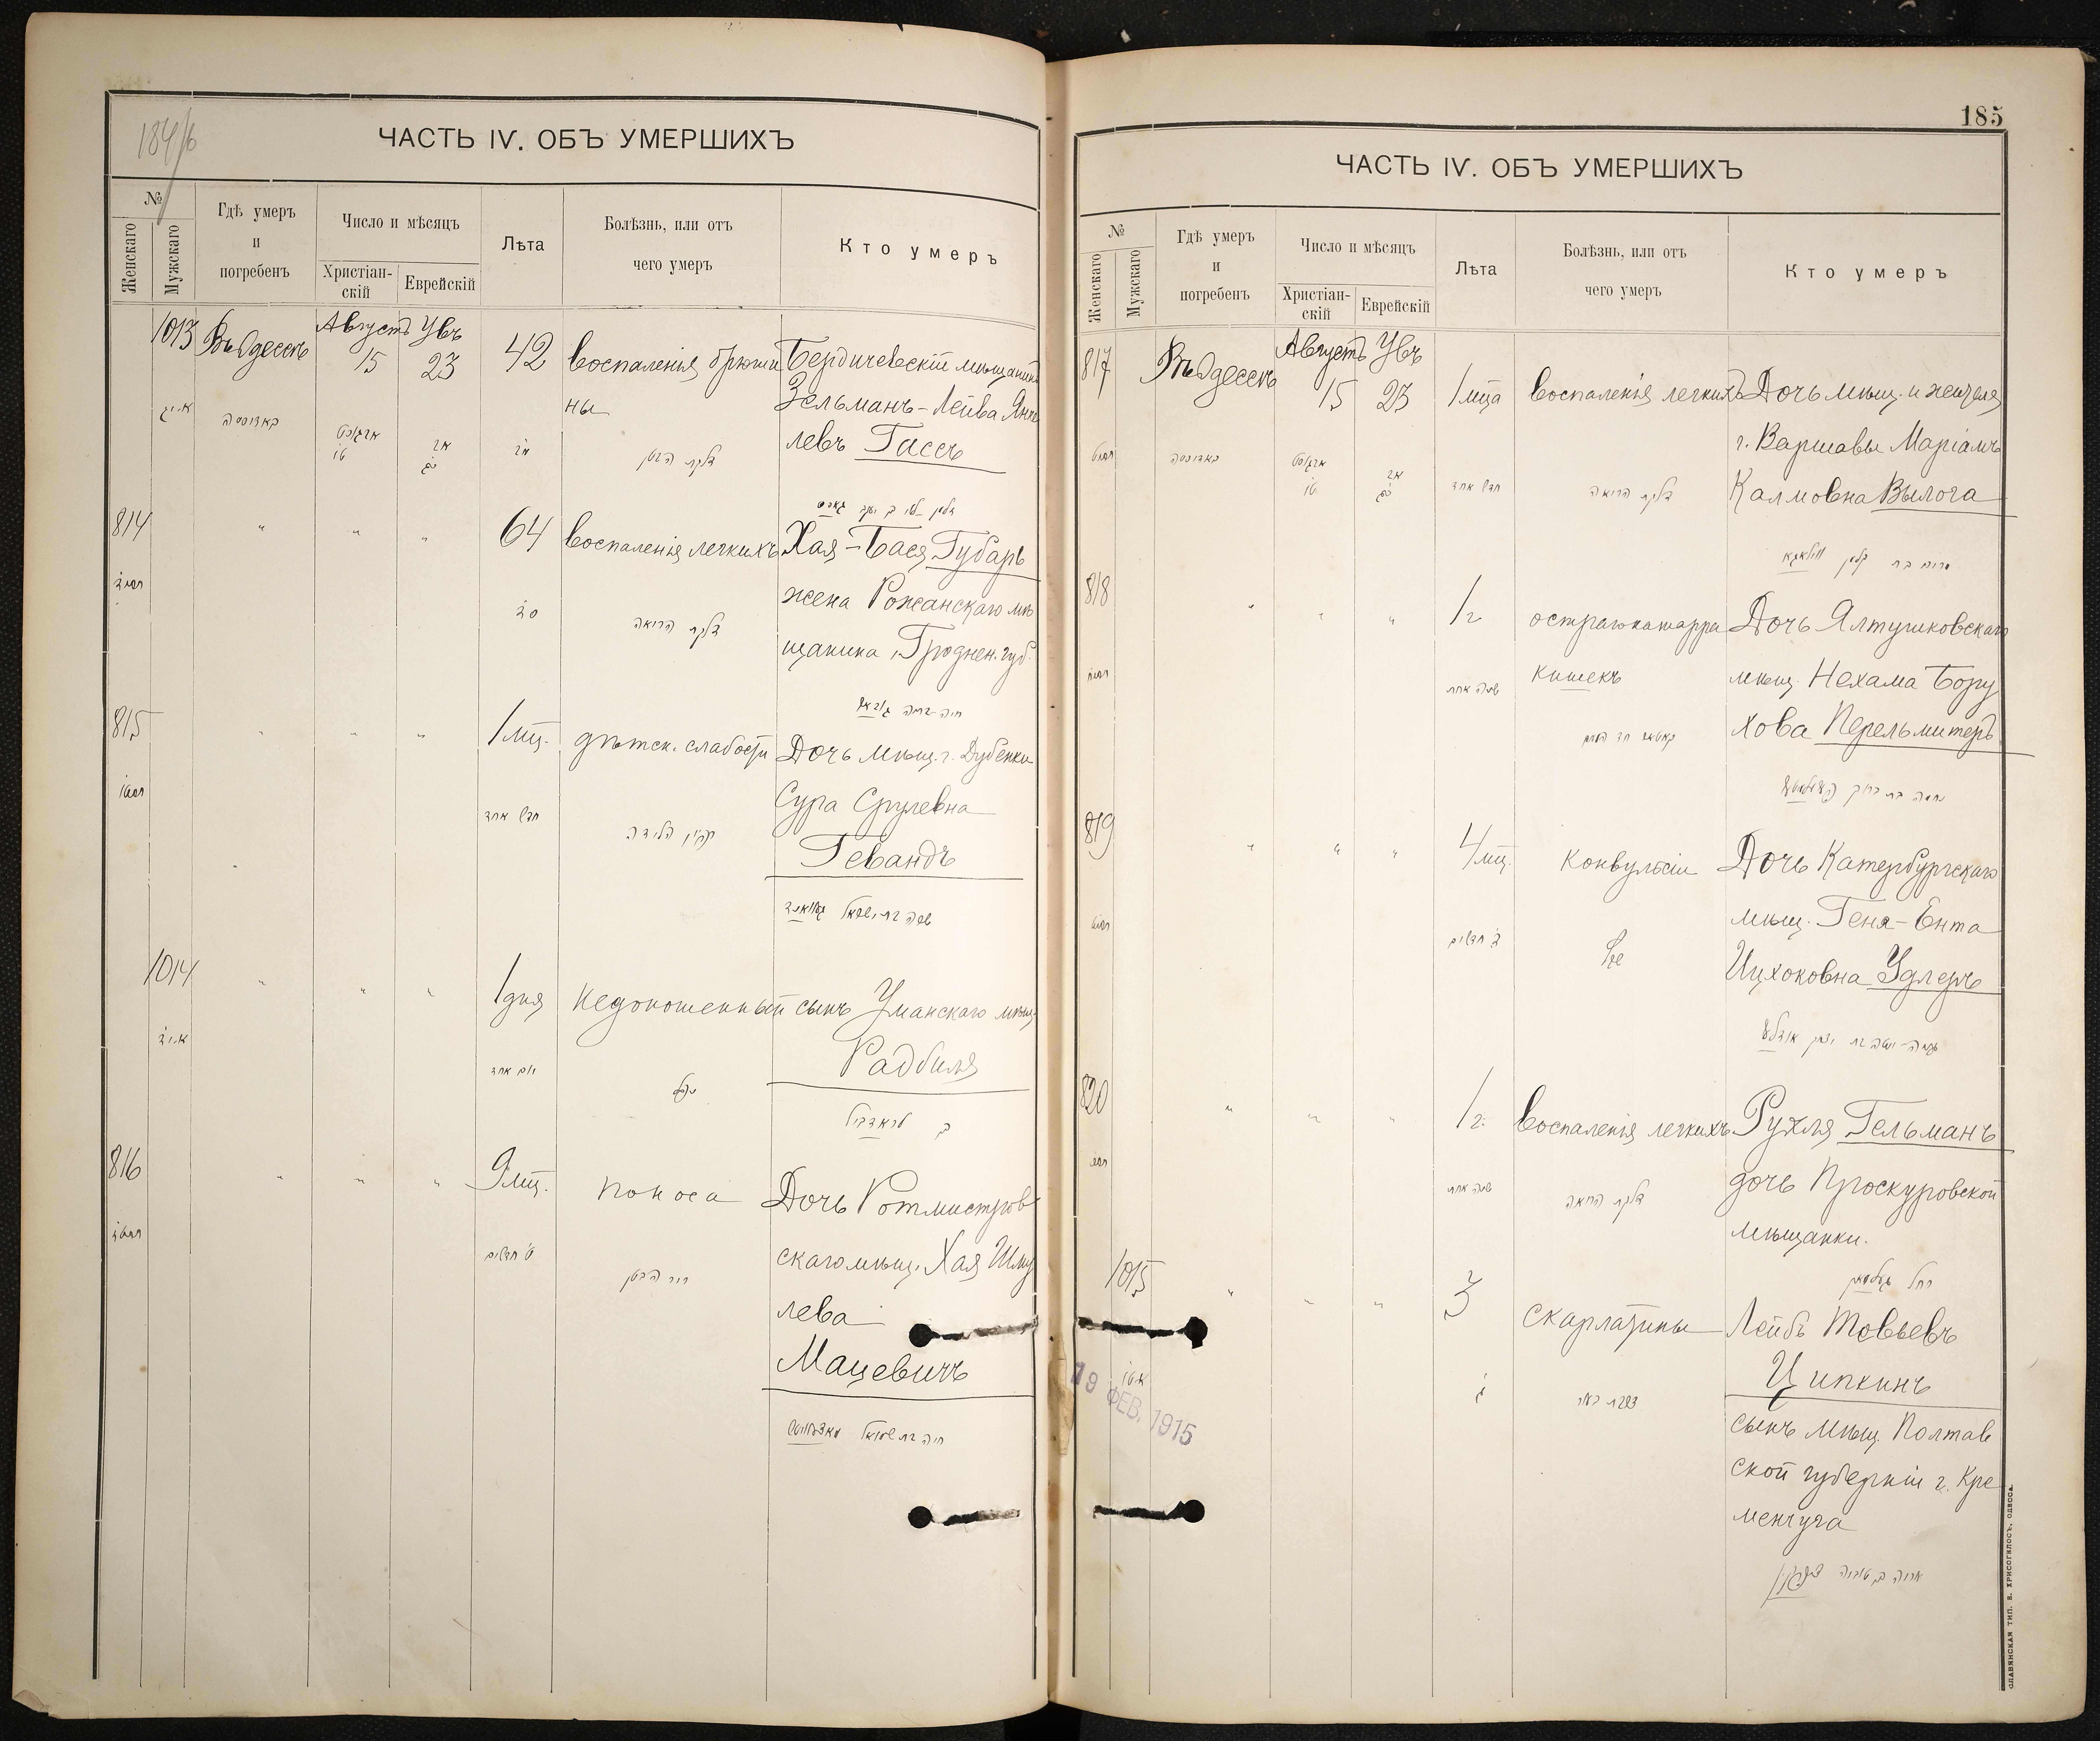 184/б
ЧАСТЬ IV. ОБЪ УМЕРШИХЪ
№
Женскаго
Мужскаго
Гдѣ умеръ
и
погребенъ
Число и мѣсяцъ
Христіан-
скій
Еврейскій
Лѣта
Болѣзнь, или отъ
чего умеръ
Кто умеръ
1013 Въ Одессѣ Августъ 15 Увъ 23 42 воспаленія брюши Бердичевскій мѣщанинъ
ны Зельманъ-Лейба Янке
левъ Гассъ
דלקת הבטן
814 " " " 64 воспаленія легкихъ Хая-Бася Губарь
жена Рожанскаго мѣ
щанина, Гроднен. губ.
דלקת הריאה
815 " " " 1 мц. дѣтск. слабости Дочь мѣщ. г. Дубенки
Сура Срулевна
Гевандъ
חדש אחד
1014 " " " 1 дня недоношенный сынъ Уманскаго мѣщ.
Радбиля
יום אחד
816 " " " 9 мц. поноса Дочь Ротмистров
скаго мѣщ. Хая Шму
лева
Мацевичъ
ט' חדשים
185
ЧАСТЬ IV. ОБЪ УМЕРШИХЪ
№
Женскаго
Мужскаго
Гдѣ умеръ
и
погребенъ
Число и мѣсяцъ
Христіан-
скій
Еврейскій
Лѣта
Болѣзнь, или отъ
чего умеръ
Кто умеръ
817 Въ Одессѣ Августъ 15 Увъ 23 1 мца воспаленія легкихъ Дочь мѣщ. и жителя
г. Варшавы Маріамъ
Калмовна Вылога
חדש אחד דלקת הריאה
818 " " " 1 г. остраго катарра Дочь Ялтушковскаго
кишекъ мѣщ. Нехама Бору
хова Перельмитеръ
שנה אחת
819 " " " 4 мц. конвульсіи Дочь Катербургскаго
мѣщ. Геня-Ента
Ицхоковна Удлеръ
ד' חדשים
820 " " " 1 г. воспаленія легкихъ Рухля Гельманъ
дочь Проскуровской
мѣщанки.
שנה אחת דלקת הריאה
רחל געלמאן
1015 " " " 3 скарлатины Лейбъ Товьевъ
Ципкинъ
сынъ мѣщ. Полтав
ской губерніи г. Кре
менчуга
אריה בן טוביה ציפקין
19 ФЕВ. 1915
СЛАВЯНСКАЯ ТИП. Е. ХРИСОГЕЛОСЪ, ОДЕССА.